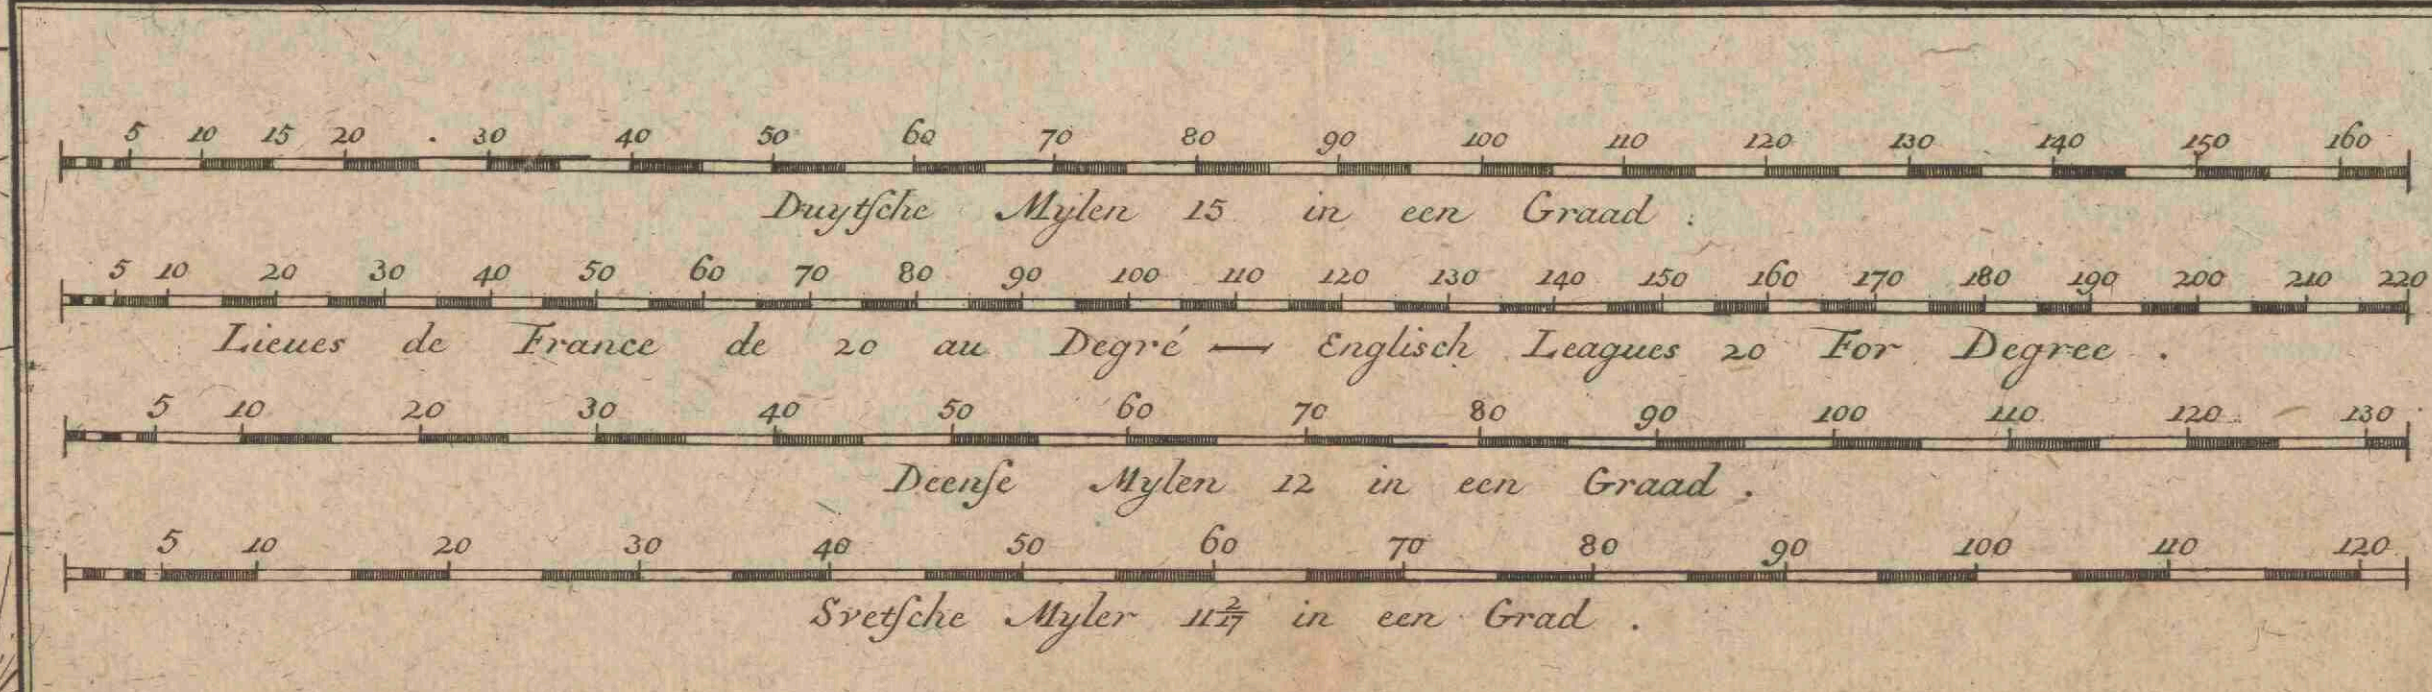 5 10 15 20 . 30 40 50 60 70 80 90 100 110 120 130 140 150 160
Duytſche Mylen 15 in een Graad .
5 10 20 30 40 50 60 70 80 90 100 110 120 130 140 150 160 170 180 190 200 210 220
Lieues de France de 20 au Degré — Englisch Leagues 20 For Degree .
5 10 20 30 40 50 60 70 80 90 100 110 120 130
Deenſe Mylen 12 in een Graad .
5 10 20 30 40 50 60 70 80 90 100 110 120
Svetſche Myler 11 2/17 in een Grad .